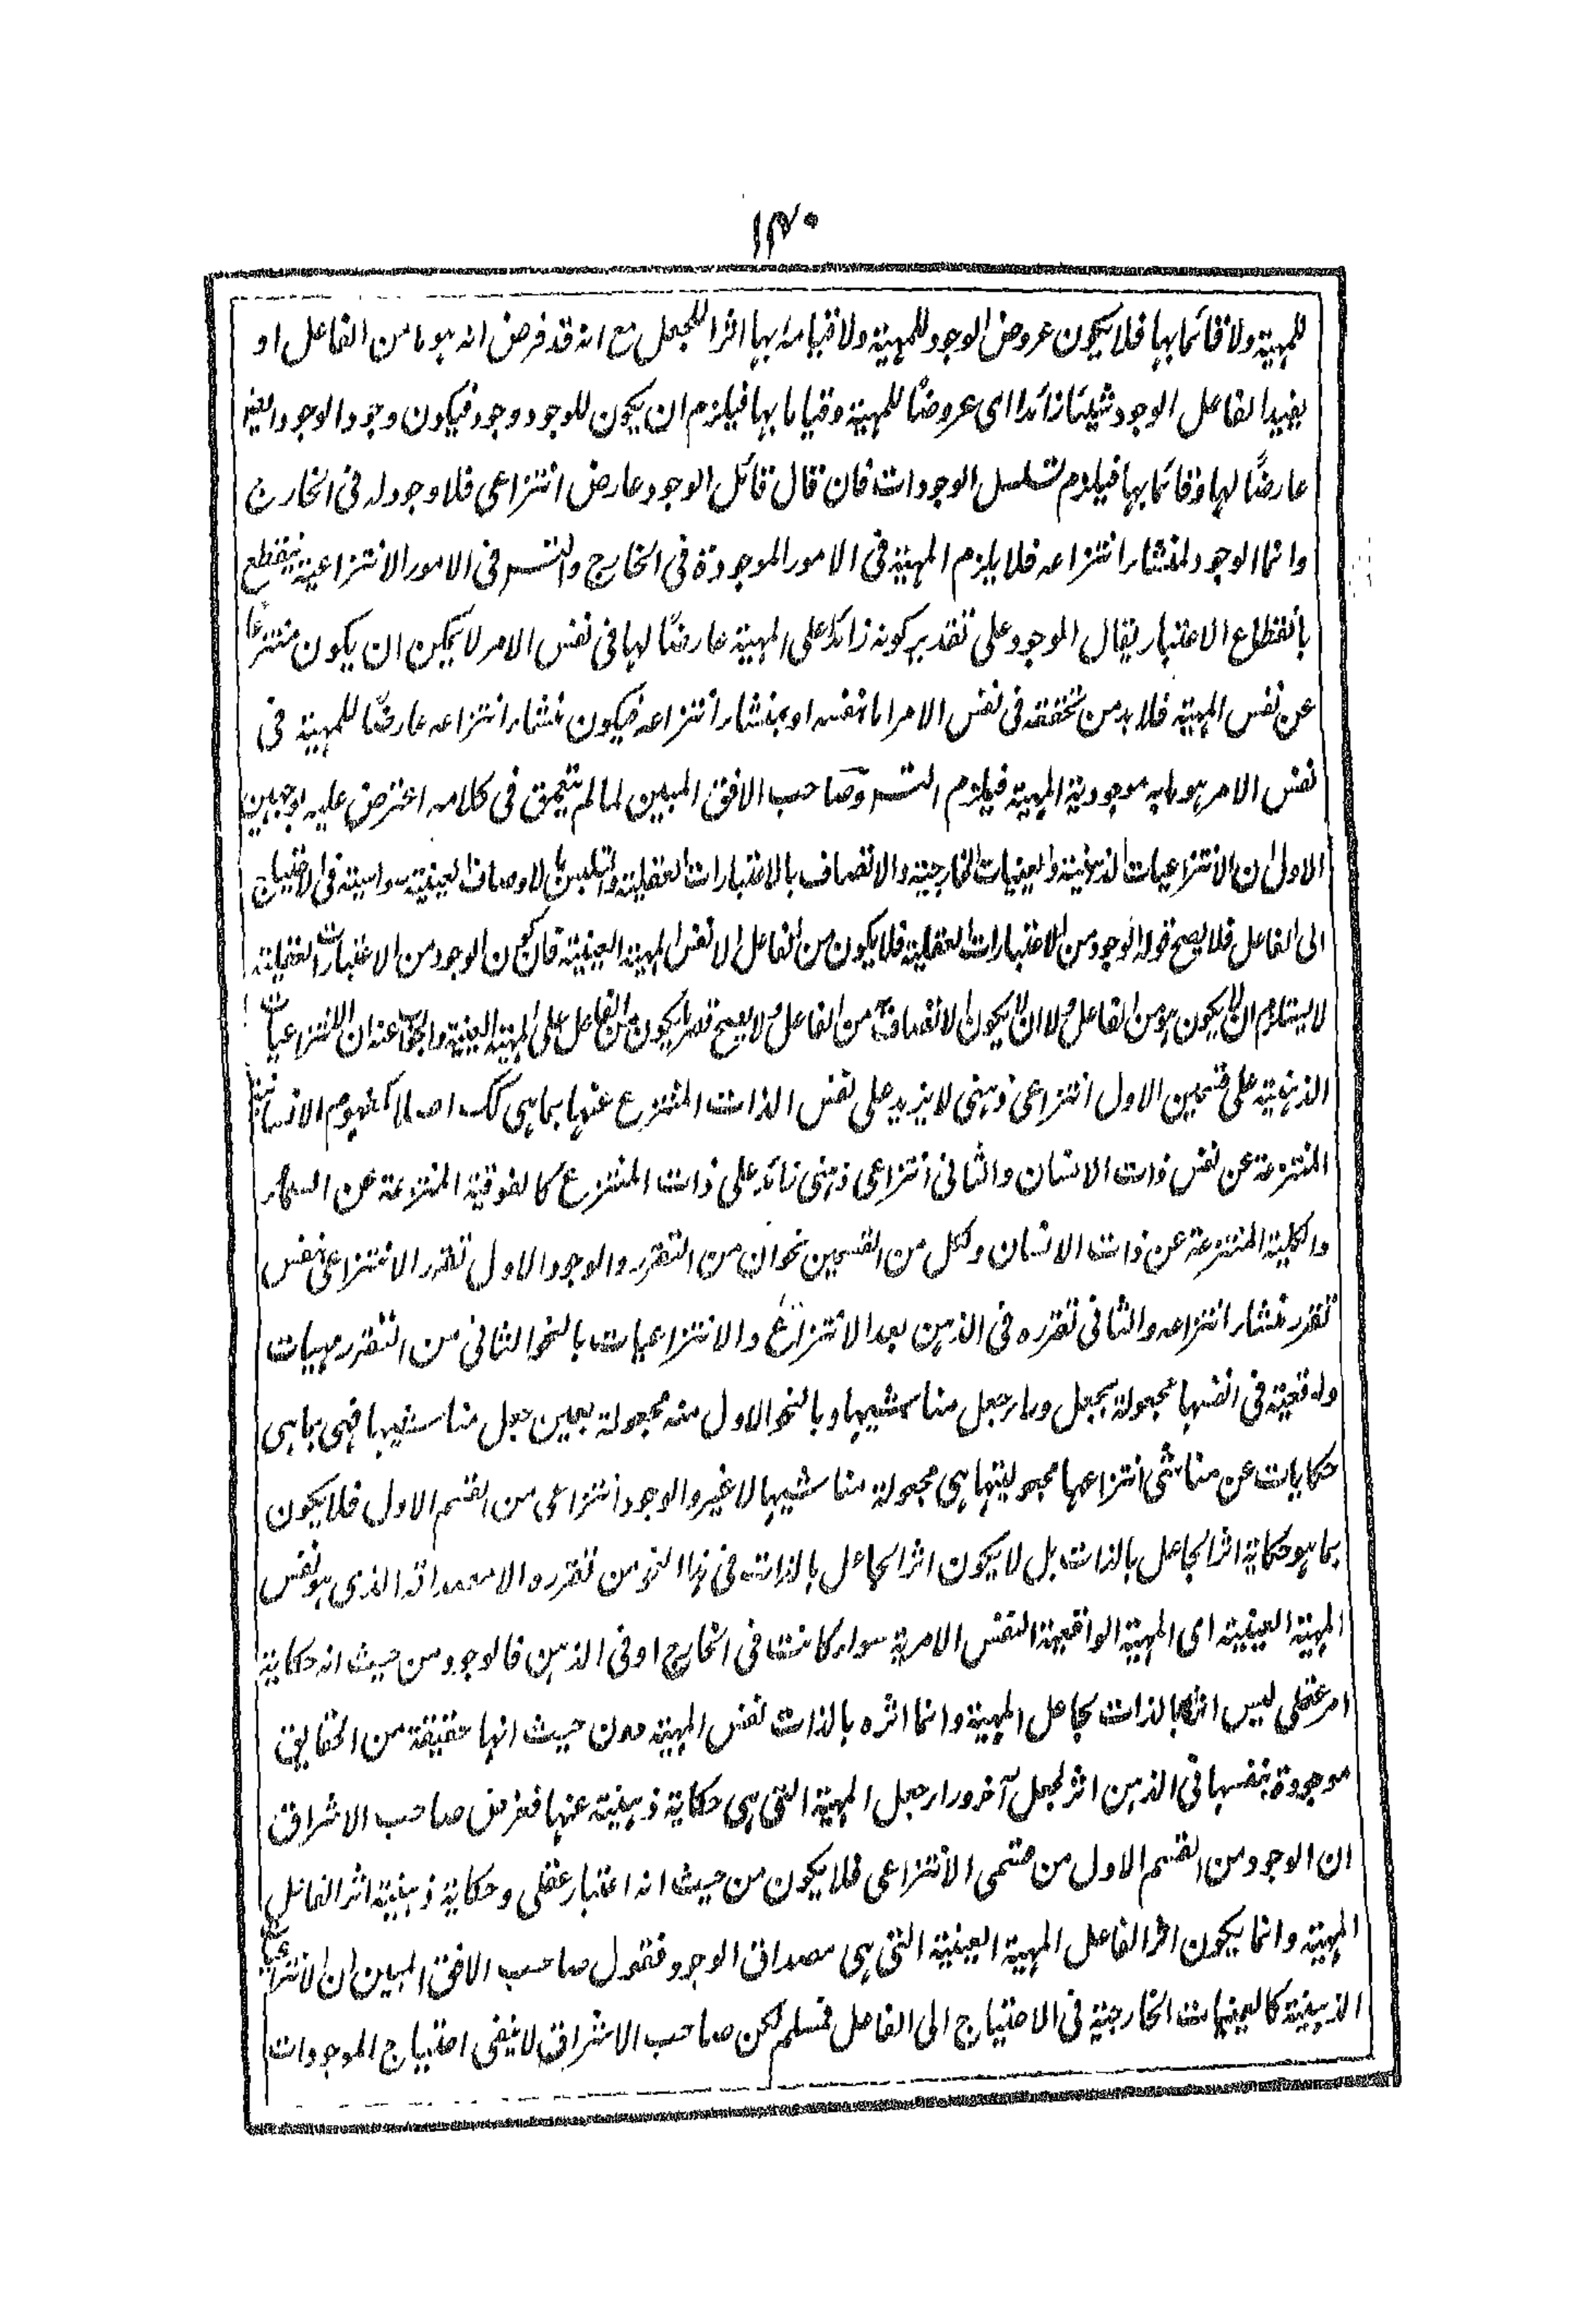 ١٣٠
للمهية ولا قائما بها فلا يكون عروض الوجود للمهية ولا قيامه بها اثرا للجعل مع انه قد فرض انه هو ما من الفاعل او
يفيد الفاعل الوجود شيئا زائدا اى عروضًا للمهية وقياما بها فيلزم ان يكون للوجود وجود فيكون وجود الوجود ايضا
عارضًا لها وقائما بها فيلزم تسلسل الوجودات فان قال قائل الوجود عارض انتزاعى فلا وجود له فى الخارج
وانما الوجود لمنشاء انتزاعه فلا يلزم المهية فى الامور الموجودة فى الخارج والتسـ فى الامور الانتزاعية ينقطع
بانقطاع الاعتبار يقال الوجود على تقدير كونه زائدا على المهية عارضًا لها فى نفس الامر لا يمكن ان يكون منتزعًا
عن نفس المهية فلا بد من تحققه فى نفس الامر اما بنفسه او بمنشاء انتزاعه فيكون منشاء انتزاعه عارضًا للمهية فى
نفس الامر هو ما به موجودية المهية فيلزم التسـ وصاحب الافق المبين لما لم يتعمق فى كلامه اعترض عليه بوجهين
الاول ان الانتزاعيات الذهنية والعينيات الخارجية والاتصاف بالاعتبارات العقلية والتلبس بالاوصاف العينية سواسية فى الاحتياج
الى الفاعل فلا يصح قوله الوجود من الاعتبارات العقلية فلا يكون من الفاعل الا نفس المهية العينية فان كون الوجود من الاعتبارات العقلية
لا يستلزم ان لا يكون هو من الفاعل ولا ان لا يكون الاتصاف به من الفاعل ولا يصح قصر ما يكون من الفاعل على المهية العينية والجواب عنه ان الانتزاعيات
الذهنية على قسمين الاول انتزاعى ذهنى لا يزيد على نفس الذات المنتزع عنها بما هى كك اصلا كمفهوم الانسانية
المنتزعة عن نفس ذات الانسان والثانى انتزاعى ذهنى زائد على ذات المنتزع كالفوقية المنتزعة عن السماء
والكلية المنتزعة عن ذات الانسان ولكل من القسمين نحوان من التقرر والوجود الاول تقرر الانتزاعى بنفس
تقرر منشاء انتزاعه والثانى تقرره فى الذهن بعد الانتزاع والانتزاعيات بالنحو الثانى من التقرر مهيات
واقعية فى انفسها مجعولة بجعل وراء جعل مناشيها وبالنحو الاول منه مجعولة بعين جعل مناشيها فهى بما هى
حكايات عن مناشى انتزاعها مجعوليتها هى مجعولة مناشيها لا غير والوجود انتزاعى من القسم الاول فلا يكون
بما هو حكاية اثر الجاعل بالذات بل لا يكون اثر الجاعل بالذات فى هذا النحو من تقرره الا مصداقه الذى هو نفس
المهية العينية اى المهية الواقعية النفس الامرية سواء كانت فى الخارج او فى الذهن فالوجود من حيث انه حكاية
امر عقلى ليس اثرا بالذات لجاعل المهية وانما اثره بالذات نفس المهية ومن حيث انها حقيقة من الحقايق
موجودة بنفسها فى الذهن اثر لجعل آخر وراء جعل المهية التى هى حكاية ذهنية عنها فغرض صاحب الاشراق
ان الوجود من القسم الاول من قسمى الانتزاعى فلا يكون من حيث انه اعتبار عقلى وحكاية ذهنية اثر الفاعل
المهية وانما يكون اثر الفاعل المهية العينية التى هى مصداق الوجود فقول صاحب الافق المبين ان الانتزاعيات
الذهنية كالعينيات الخارجية فى الاحتياج الى الفاعل فمسلم لكن صاحب الاشراق لا ينفى احتياج الموجودات